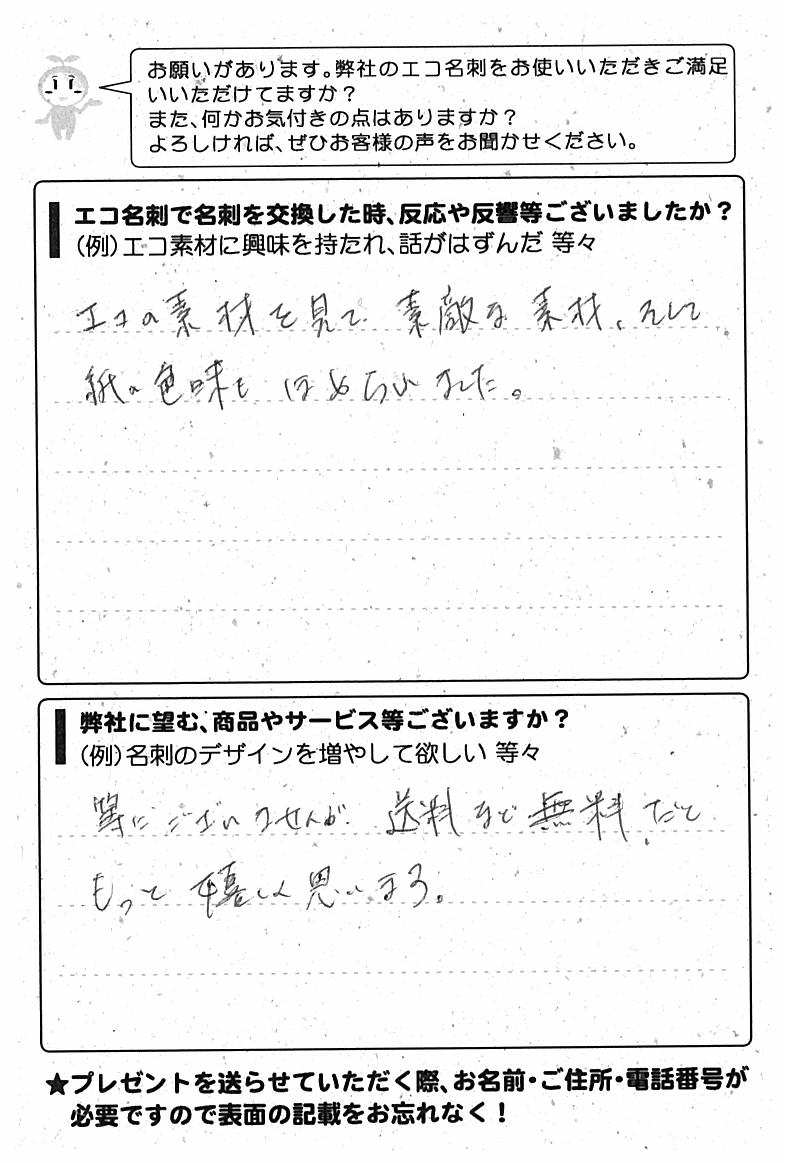 お願いがあります。弊社のエコ名刺をお使いいただきご満足
いいただけてますか？
また、何かお気付きの点はありますか？
よろしければ、ぜひお客様の声をお聞かせください。
エコ名刺で名刺を交換した時、反応や反響等ございましたか？
（例）エコ素材に興味を持たれ、話がはずんだ 等々
エコの素材を見て、素敵な素材、そして
紙の色味も ほめらいました。
弊社に望む、商品やサービス等ございますか？
（例）名刺のデザインを増やして欲しい 等々
特にございませんが、送料など無料だと
もっと嬉しく思います。
★プレゼントを送らせていただく際、お名前・ご住所・電話番号が
必要ですので表面の記載をお忘れなく！